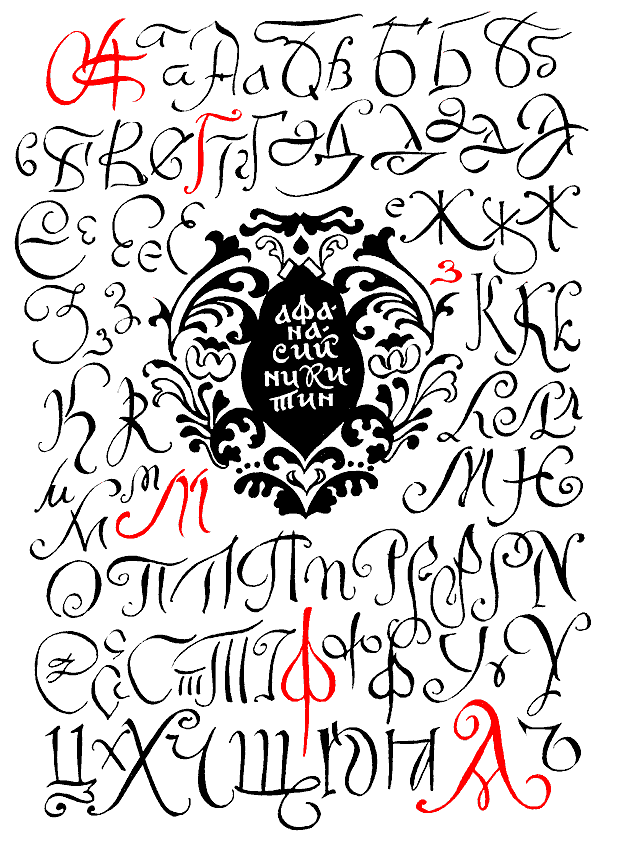 А а а А а В в Б Б Б б
в Б В Г Г Г Д Д Д Д Д
Е е Е е Е е Ж ж Ж
З з З з К К к
афа-
на-
сий
ники-
тин
К К Л Л л
м м М М М Н
О П П П п Р р Р Р N
с С т Т Ф ф Ф У у У
Ц х Х Ч Щ Ю Н А Ъ